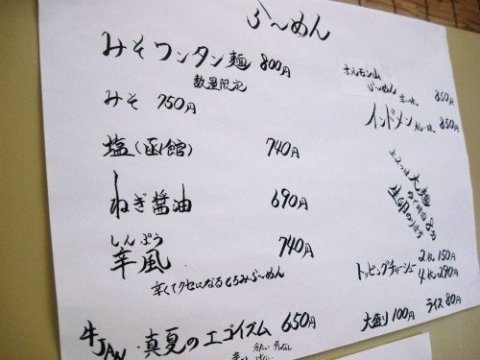 らーめん
みそワンタン麺 800円
数量限定
みそ 750円
塩(函館) 740円
ねぎ醤油 690円
しんぷう
辛風 740円
辛くてクセになるとろみらーめん
牛JAN 真夏のエゴイズム 650円
ホルモン
らーめん 850円
インドメン 850円
大麺
ゆで時間 8分
トッピングチャーシュー 2枚 150円
4枚 290円
大盛り 100円 ライス 80円